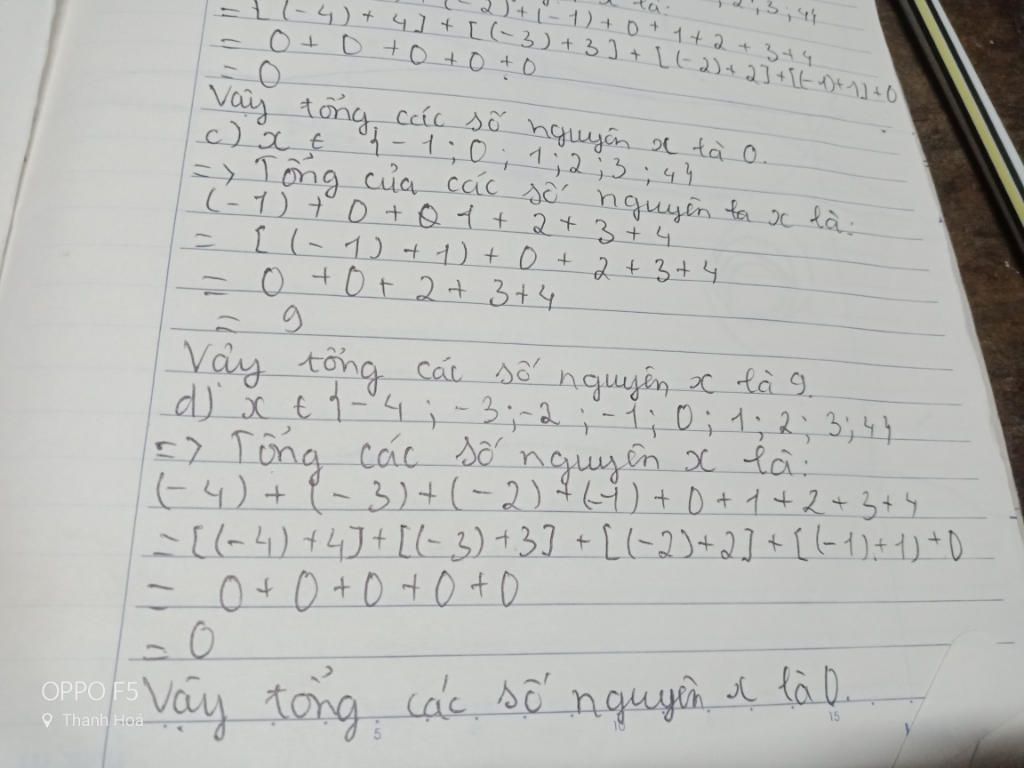 (-2) + (-1) + 0 + 1 + 2 + 3 + 4
= [(-4) + 4] + [(-3) + 3] + [(-2) + 2] + [(-1) + 1] + 0
= 0 + 0 + 0 + 0 + 0
= 0
Vậy tổng các số nguyên x là 0.
c) x ∈ {-1 ; 0 ; 1 ; 2 ; 3 ; 4}
=> Tổng của các số nguyên x là:
(-1) + 0 + 1 + 2 + 3 + 4
= [(-1) + 1) + 0 + 2 + 3 + 4
= 0 + 0 + 2 + 3 + 4
= 9
Vậy tổng các số nguyên x là 9.
d) x ∈ {-4 ; -3 ; -2 ; -1 ; 0 ; 1 ; 2 ; 3 ; 4}
=> Tổng các số nguyên x là:
(-4) + (-3) + (-2) + (-1) + 0 + 1 + 2 + 3 + 4
= [(-4) + 4] + [(-3) + 3] + [(-2) + 2] + [(-1) + 1) + 0
= 0 + 0 + 0 + 0 + 0
= 0
Vậy tổng các số nguyên x là 0.
OPPO F5
Thanh Hoá
5 10 15